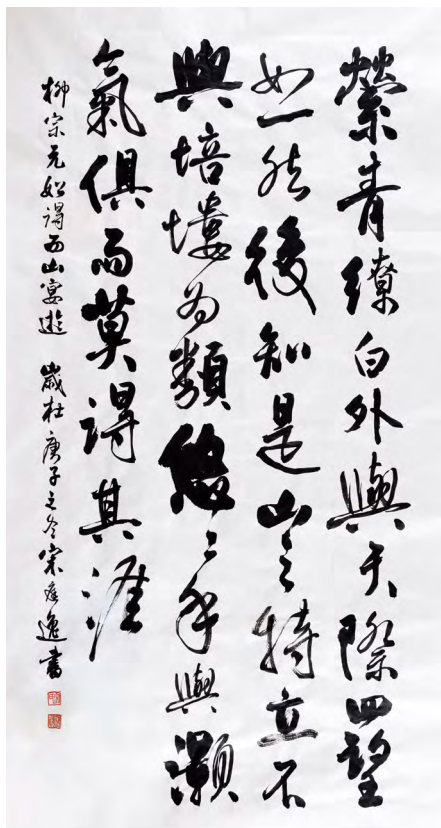 縈青繚白外與天際四望
如一然後知是山之特立不
與培塿為類悠〻乎與灝
氣俱而莫得其涯
柳宗元始得西山宴遊 歲在庚子之冬 宋 逸書